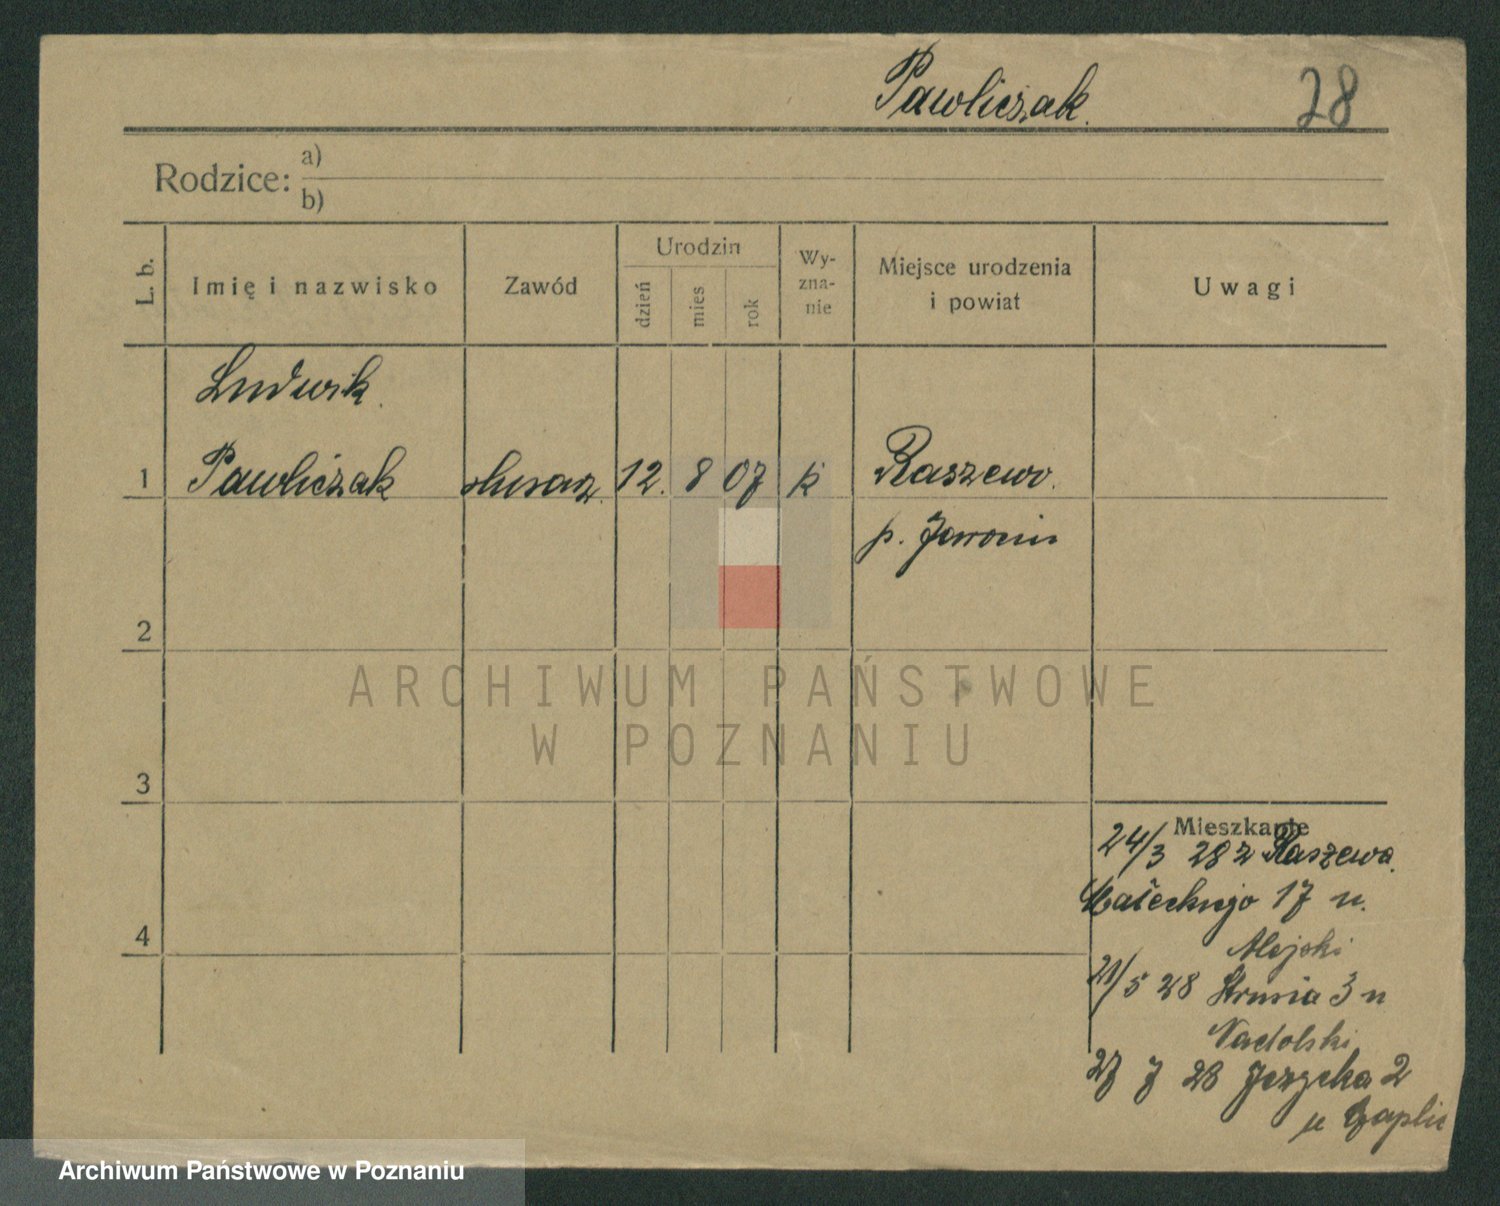 Pawliczak 28
Rodzice: a)
b)
L. b. Imię i nazwisko Zawód Urodzin dzień mies rok Wy-zna-nie Miejsce urodzenia i powiat Uwagi
Ludwik
1 Pawliczak ślusarz 12. 8 07 k Raszewo.
p. Jarocin
2
3
4
Mieszkanie
24/3 28 z Raszewa.
Małeckiego 17 u.
21/5 28 Strusia 3 u
Nadolski
27 7 28 Jeżycka 2
u
ARCHIWUM PAŃSTWOWE
W POZNANIU
Archiwum Państwowe w Poznaniu